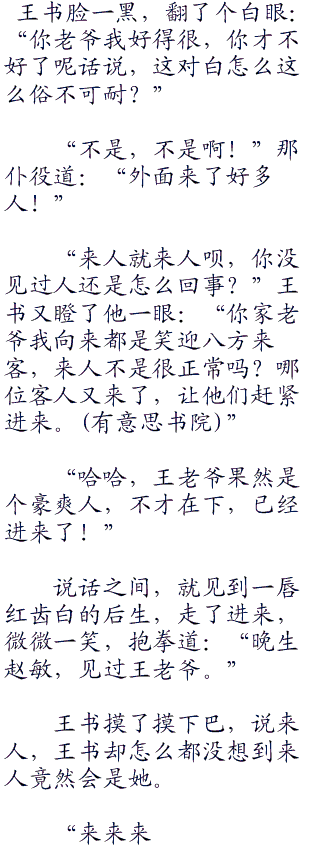 王书脸一黑，翻了个白眼：
“你老爷我好得很，你才不
好了呢话说，这对白怎么这
么俗不可耐？”
“不是，不是啊！”那
仆役道：“外面来了好多
人！”
“来人就来人呗，你没
见过人还是怎么回事？”王
书又瞪了他一眼：“你家老
爷我向来都是笑迎八方来
客，来人不是很正常吗？哪
位客人又来了，让他们赶紧
进来。(有意思书院)”
“哈哈，王老爷果然是
个豪爽人，不才在下，已经
进来了！”
说话之间，就见到一唇
红齿白的后生，走了进来，
微微一笑，抱拳道：“晚生
赵敏，见过王老爷。”
王书摸了摸下巴，说来
人，王书却怎么都没想到来
人竟然会是她。
“来来来